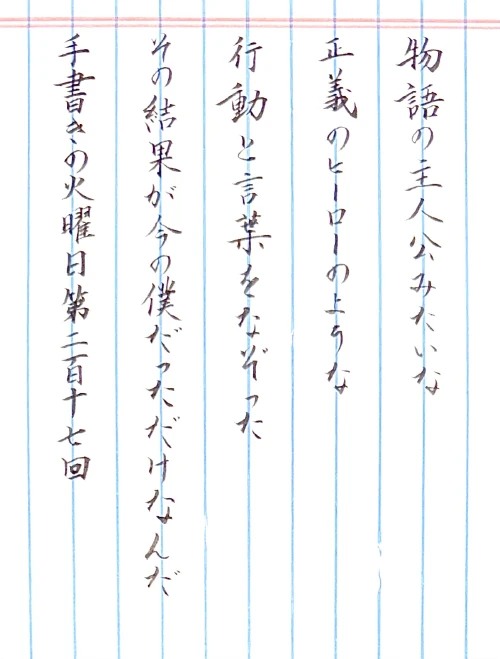 物語の主人公みたいな
正義のヒーローのような
行動と言葉をなぞった
その結果が今の僕だっただけなんだ
手書きの火曜日第二百十七回